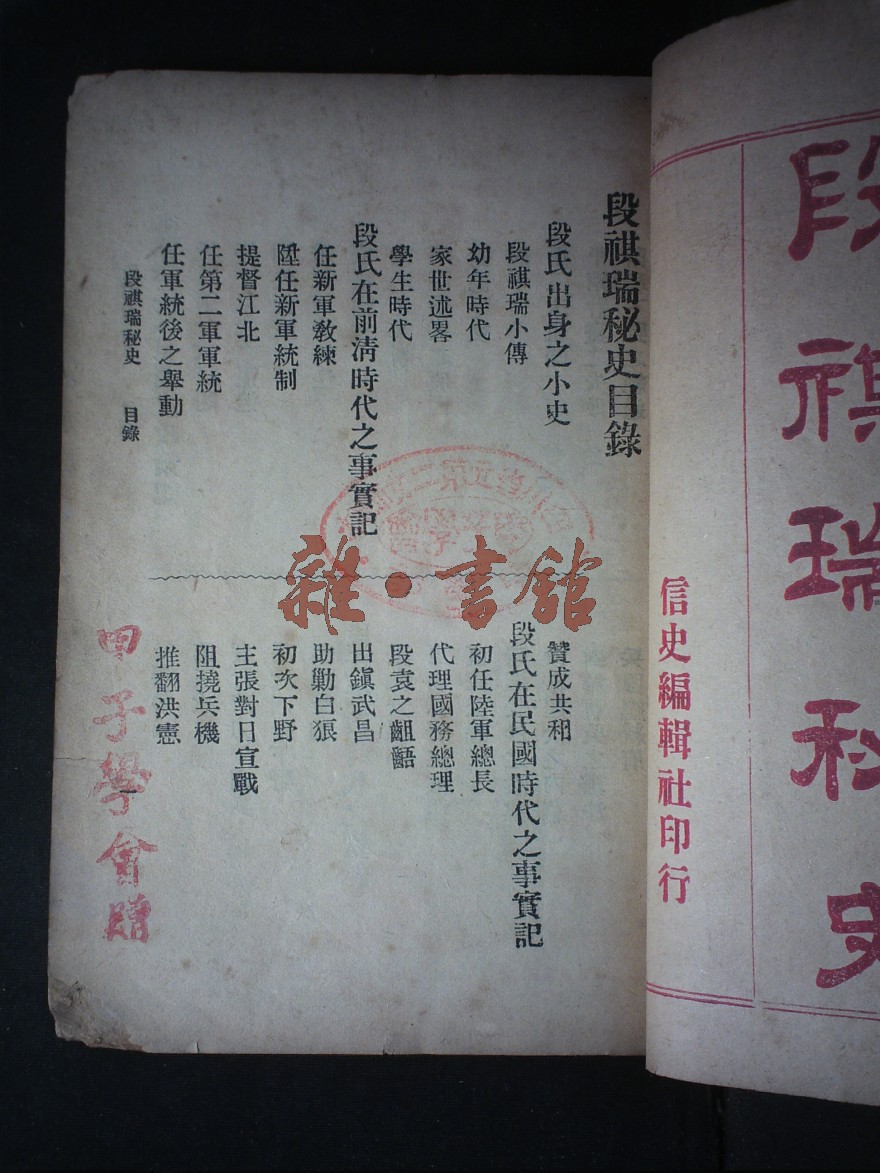 段祺瑞秘史
信史編輯社印行
段祺瑞秘史目錄
段氏出身之小史
段祺瑞小傳
幼年時代
家世述畧
學生時代
段氏在前清時代之事實記
任新軍教練
陞任新軍統制
提督江北
任第二軍軍統
任軍統後之舉動
贊成共和
段氏在民國時代之事實記
初任陸軍總長
代理國務總理
段袁之齟齬
出鎭武昌
助勦白狼
初次下野
主張對日宣戰
阻撓兵機
推翻洪憲
段祺瑞秘史 目錄 一
甲子學會贈
雜·書館